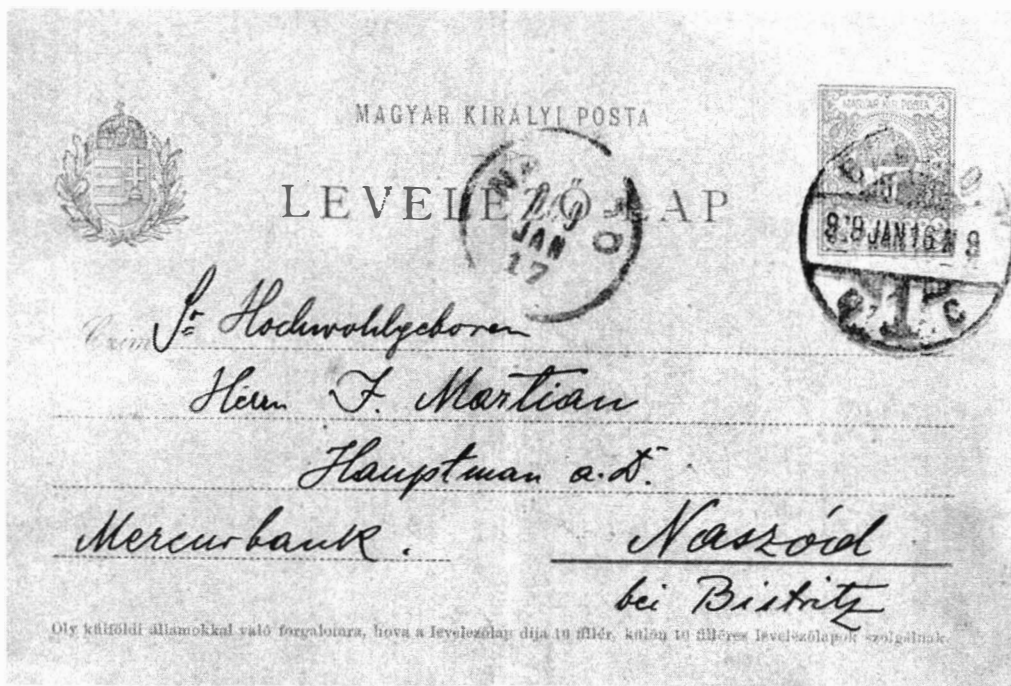 MAGYAR KIRÁLYI POSTA
MAGYAR KIR. POSTA
LEVELEZŐ-LAP
909
JAN
17
JAN 16
Czim
Sr Hochwohlgeboren
Herrn J. Martian
Hauptman a. D.
Mercurbank.
Naszód
bei Bistritz
Oly külföldi államokkal való forgalomra, hova a levelezőlap dija 10 fillér, külön 10 filléres levelezőlapok szolgálnak.